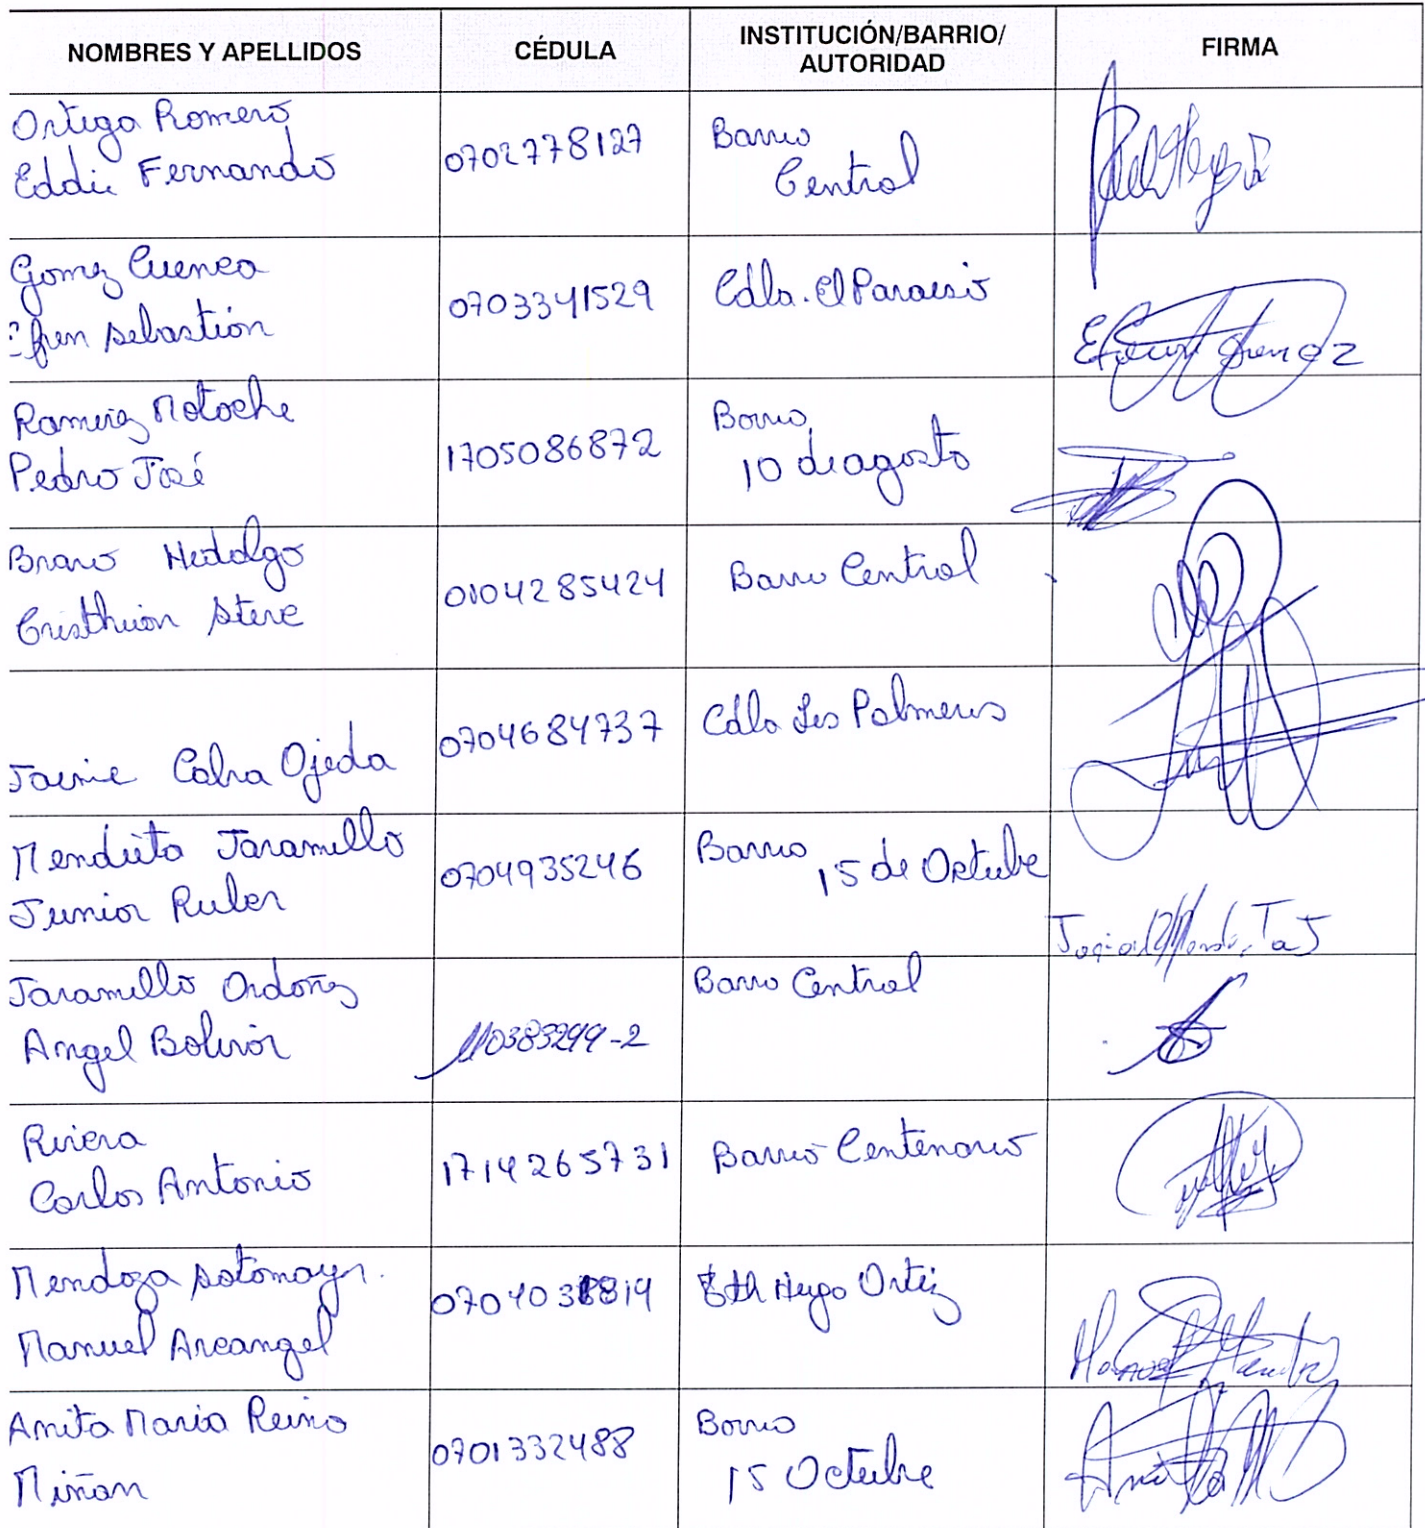 NOMBRES Y APELLIDOS CÉDULA INSTITUCIÓN/BARRIO/ AUTORIDAD FIRMA
Ortega Romero
Eddie Fernando
0702778127
Barrio
Central
Gomez Cuenca
Efren Sebastián
0703341529
Cdla. El Paraiso
Ramirez Motoche
Pedro José
1705086872
Barrio
10 de agosto
Bravo Hidalgo
Cristhian Steve
0104285424
Barrio Central
Jaime Ojeda
0704684737
Cdla Las Palmeras
Mendieta Jaramillo
Junior Ruber
0704935246
Barrio
15 de Octubre
Jaramillo Ordoñez
Angel Bolivar
110383299-2
Barrio Central
Rivera
Carlos Antonio
1714265731
Barrio Centenario
Mendoza Sotomayr.
Manuel Arcangel
Hugo Ortiz
Anita Maria Reino
Miñan
0701332488
Barrio
15 Octubre